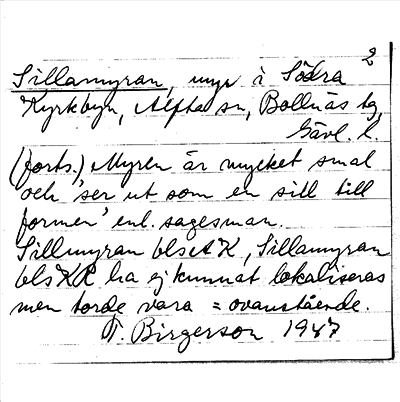 2
Sillamyran, myr å Södra
Kyrkbyn, Alfta sn, Bollnäs tg,
Gävl. l.
(forts.) Myren är mycket smal
och 'ser ut som en sill till
formen' enl. sagesman.
Sillmyran bls AK, Sillamyran
bls KR ha ej kunnat lokaliseras
men torde vara = ovanstående.
T. Birgerson 1947